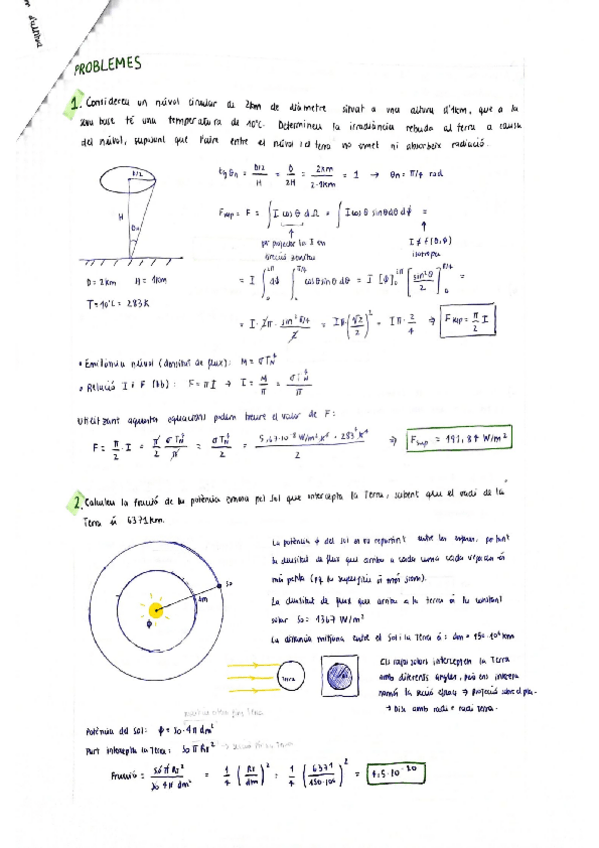 PROBLEMES
1. Considereu un núvol circular de 2km de diàmetre situat a una altura d'1km, que a la
seva base té una temperatura de 10°C. Determineu la irradiància rebuda al terra a causa
del núvol, suposant que l'aire entre el núvol i el terra no emet ni absorbeix radiació.
D/2
H
θm
D = 2km H = 1km
T = 10°C = 283K
tg θm = D/2 / H = D / 2H = 2km / 2·1km = 1 → θm = π/4 rad
Fsup = F = ∫ I cos θ dΩ = ∫ I cos θ sinθ dθ dϕ =
per projectar la I en
direcció zenital
I ≠ f(θ,ϕ)
isòtropa
= I ∫₀^2π dϕ ∫₀^π/4 cosθ sinθ dθ = I [ϕ]₀^2π [sin²θ / 2]₀^π/4 =
= I · 2π · sin² π/4 / 2 = Iπ (√2 / 2)² = Iπ · 2/4 ⇒ Fsup = π/2 I
• Emitància núvol (densitat de flux): M = σTN⁴
• Relació I i F (bb): F = πI → I = M/π = σTN⁴/π
Utilitzant aquestes equacions podem treure el valor de F:
F = π/2 · I = π/2 σTN⁴/π = σTN⁴/2 = 5,67·10⁻⁸ W/m²K⁴ · 283⁴ K⁴ / 2 ⇒ Fsup = 181,84 W/m²
2. Calculeu la fracció de la potència emesa pel Sol que intercepta la Terra, sabent que el radi de la
Terra és 6371km.
La potència ϕ del sol es va repartint entre les esferes, per tant
la densitat de flux que arriba a cada una cada vegada és
més petita
La densitat de flux que arriba a la terra és la constant
solar S₀ = 1367 W/m²
La distància mitjana entre el Sol i la Terra és: dm = 150·10⁶ km
S₀
dm
ϕ
Terra
Els rajos solars intercepten la Terra
amb diferents angles, però ens interessa
→ Disc amb radi = radi terra.
Potència del Sol: ϕ = S₀ · 4π dm²
Part intercepta la Terra: S₀ π RT²
Fracció: S₀ π RT² / S₀ 4π dm² = 1/4 (RT / dm)² = 1/4 (6371 / 150·10⁶)² = 4,5·10⁻¹⁰